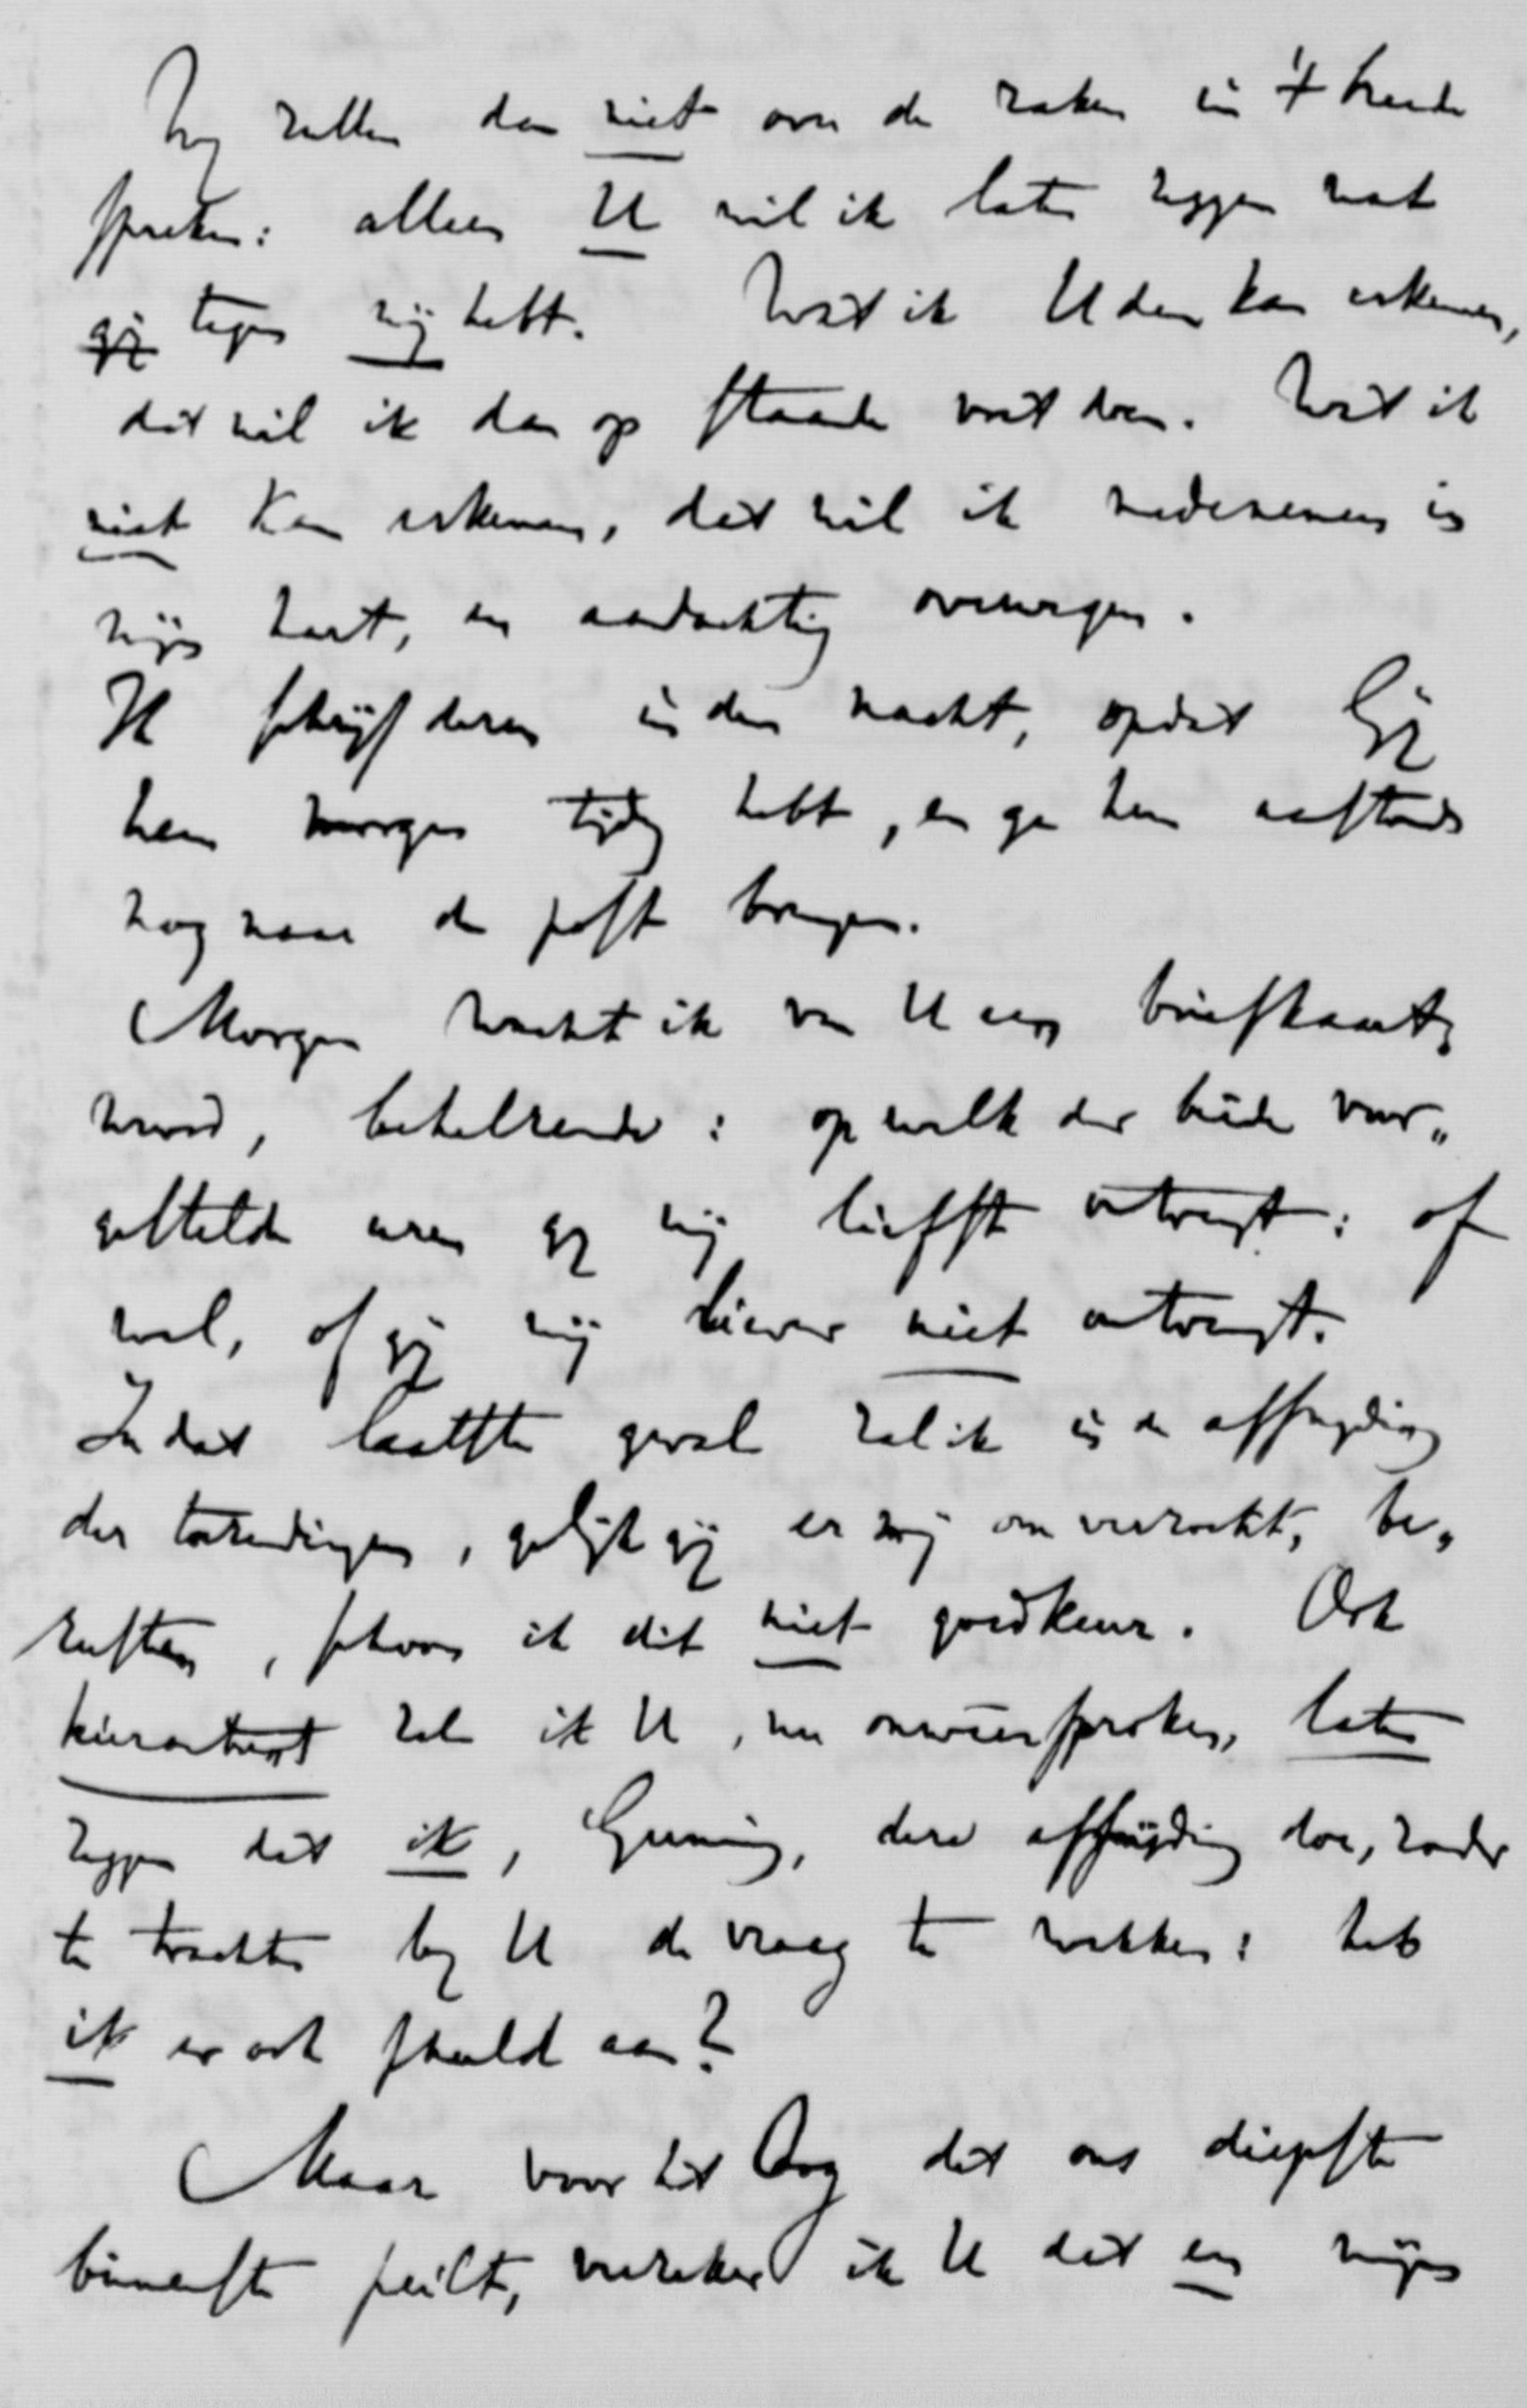 Wij zullen dan niet over de zaken in 't breede
spreken: alleen U wil ik laten zeggen wat
gij tegen mij hebt. Wat ik U dan kan erkennen,
dat wil ik dan op staande voet doen. Wat ik
niet kan erkennen, dat wil ik medenemen in
mijn hart, en aandachtig overwegen.
Ik schrijf dezen in den nacht, opdat Gij
hem morgen tijdig hebt, en ga hem aanstonds
nog naar de post brengen.
Morgen wacht ik van U een briefkaart,
behelzende: op welk der beide voor„
gestelde uren gij mij liefst ontvangt: of
wel, of gij mij liever niet ontvangt.
In dat laatste geval zal ik in de afsnijding
der toezendingen, gelijk gij er mij om verzoekt, be„
rusten, schoon ik dit niet goedkeur. Ook
hierontrent zal ik U, nu onweersproken, laten
zeggen dat ik, Gunning, deze afsnijding doe, zonder
te trachten bij U de vraag te wekken: heb
ik er ook schuld aan?
Maar voor het Oog dat ons diepste
binnenste peilt, verzeker ik U dat en mijn